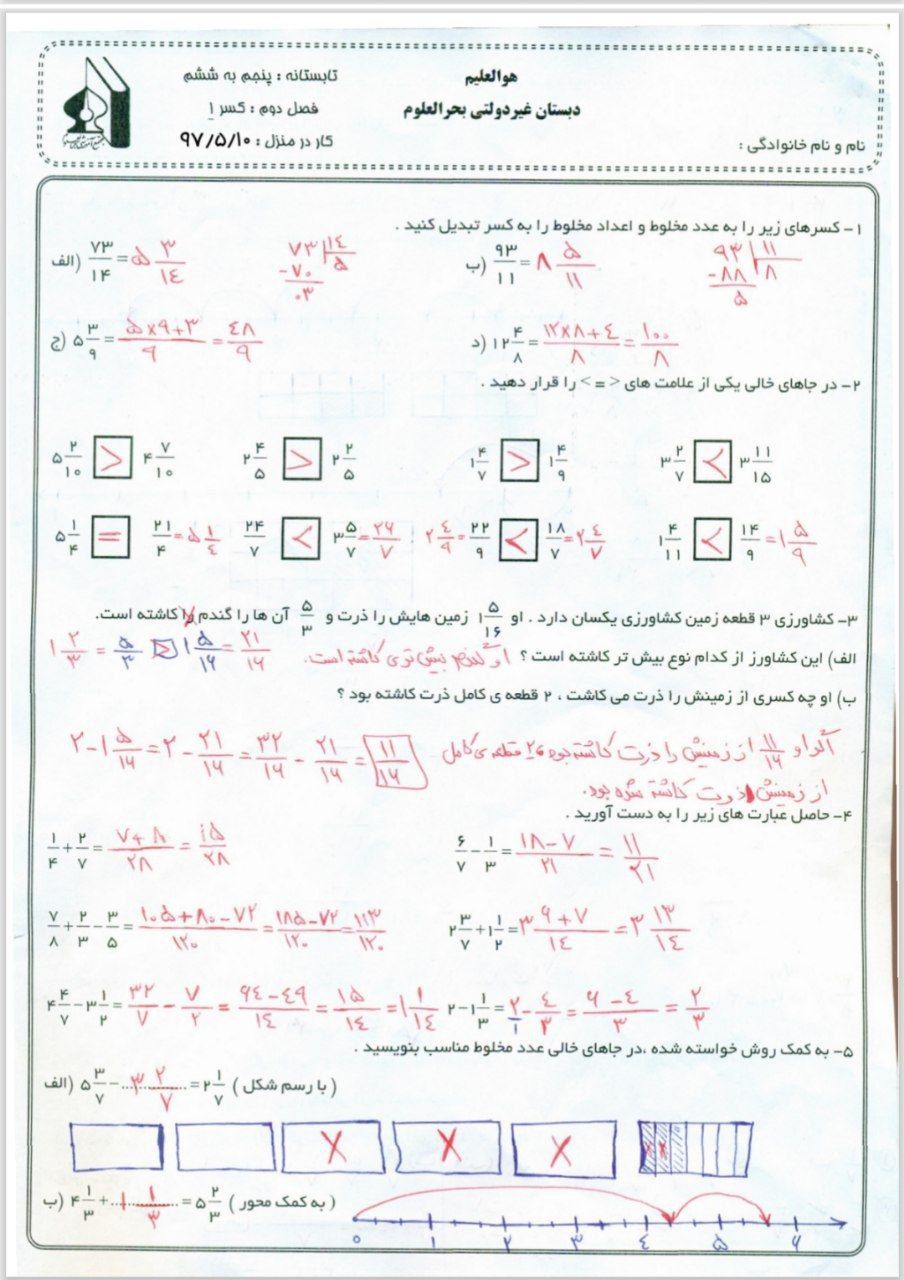 هوالعلیم
دبستان غیردولتی بحرالعلوم
تابستانه : پنجم به ششم
فصل دوم : کسر ۱
کار در منزل : ۹۷/۵/۱۰
نام و نام خانوادگی :
۱- کسرهای زیر را به عدد مخلوط و اعداد مخلوط را به کسر تبدیل کنید .
الف) ۷۳/۱۴ = ۵ ۳/۱۴   ۷۳ | ۱۴   ۵   -۷۰   ۰۳
ب) ۹۳/۱۱ = ۸ ۵/۱۱   ۹۳ | ۱۱   ۸   -۸۸   ۵
ج) ۵ ۳/۹ = ۵×۹+۳/۹ = ۴۸/۹
د) ۱۲ ۴/۸ = ۱۲×۸+۴/۸ = ۱۰۰/۸
۲- در جاهای خالی یکی از علامت های < = > را قرار دهید .
۵ ۲/۱۰ > ۴ ۷/۱۰   ۲ ۴/۵ > ۲ ۲/۵   ۱ ۴/۷ > ۱ ۴/۹   ۳ ۲/۷ < ۳ ۱۱/۱۵
۵ ۱/۴ = ۲۱/۴ = ۵ ۱/۴   ۲۴/۷ < ۳ ۵/۷ = ۲۶/۷   ۲ ۴/۹ = ۲۲/۹ < ۱۸/۷ = ۲ ۴/۷   ۱ ۴/۱۱ < ۱۴/۹ = ۱ ۵/۹
۳- کشاورزی ۳ قطعه زمین کشاورزی یکسان دارد . او ۱ ۵/۱۶ زمین هایش را ذرت و ۵/۳ آن ها را گندم کاشته است.
الف) این کشاورز از کدام نوع بیش تر کاشته است ؟ او گندم بیش تری کاشته است.
۱ ۲/۳ = ۵/۳ > ۱ ۵/۱۶ = ۲۱/۱۶
ب) او چه کسری از زمینش را ذرت می کاشت ، ۲ قطعه ی کامل ذرت کاشته بود ؟
۲ - ۱ ۵/۱۶ = ۲ - ۲۱/۱۶ = ۳۲/۱۶ - ۲۱/۱۶ = ۱۱/۱۶
اگر او ۱۱/۱۶ از زمینش را ذرت کاشته بود ۲ قطعه ی کامل
از زمینش ذرت کاشته شده بود.
۴- حاصل عبارت های زیر را به دست آورید .
۱/۴ + ۲/۷ = ۷+۸/۲۸ = ۱۵/۲۸
۶/۷ - ۱/۳ = ۱۸-۷/۲۱ = ۱۱/۲۱
۷/۸ + ۲/۳ - ۳/۵ = ۱۰۵+۸۰-۷۲/۱۲۰ = ۱۸۵-۷۲/۱۲۰ = ۱۱۳/۱۲۰
۲ ۳/۷ + ۱ ۱/۲ = ۳ ۶+۷/۱۴ = ۳ ۱۳/۱۴
۴ ۴/۷ - ۳ ۱/۲ = ۳۲/۷ - ۷/۲ = ۶۴-۴۹/۱۴ = ۱۵/۱۴ = ۱ ۱/۱۴
۲ - ۱ ۱/۳ = ۲/۱ - ۴/۳ = ۶-۴/۳ = ۲/۳
۵- به کمک روش خواسته شده ،در جاهای خالی عدد مخلوط مناسب بنویسید .
الف) ۵ ۳/۷ - ...۳ ۲/۷... = ۲ ۱/۷ ( با رسم شکل )
ب) ۴ ۱/۳ + ...۱ ۱/۳... = ۵ ۲/۳ ( به کمک محور )
۰ ۱ ۲ ۳ ۴ ۵ ۶